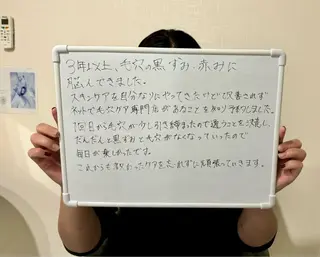 3年以上、毛穴の黒ずみ・赤みに
悩んできました。
スキンケアを自分なりにやってきたけどで改善されず
ネットで毛穴ケア専門店があることを知り予約しました。
1回目から毛穴が少し引き締まったので通うことを決意し、
だんだんと黒ずみと毛穴がなくなっていったので
毎日が楽しかったです。
これからも教わったケアを忘れずに頑張っていきます。